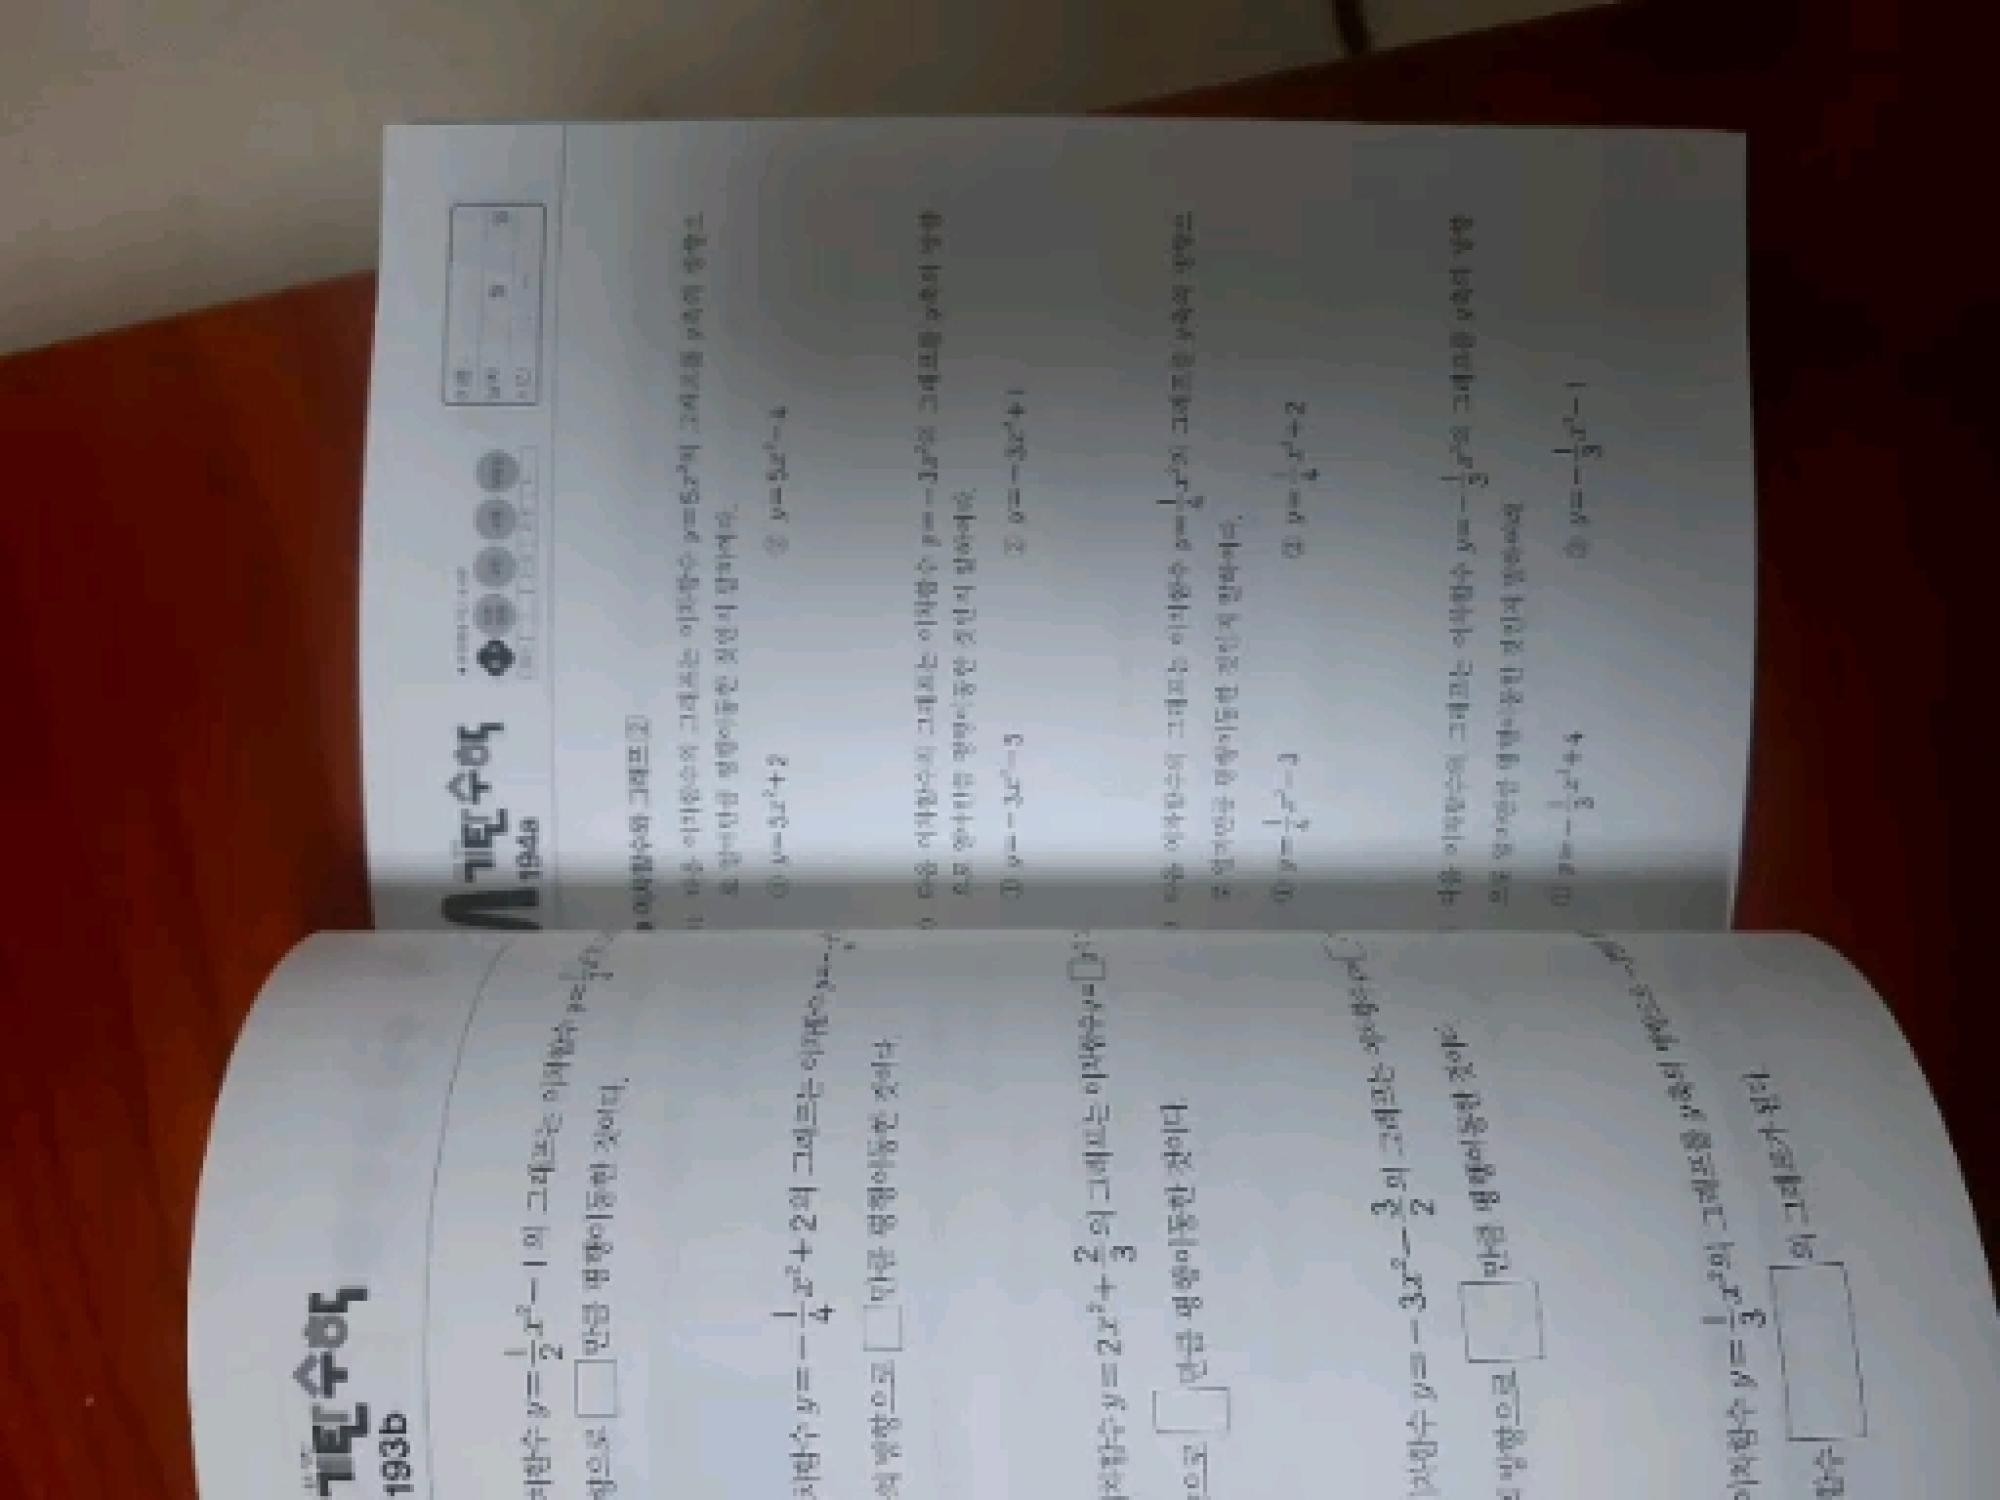 기탄수학
193b
차함수 y=1/2x²-1의 그래프는 이차함수
만큼 평행이동한 것이다.
차함수 y=-1/4x²+2의 그래프는 이차함수
의 방향으로 □ 만큼 평행이동한 것이다.
차함수 y=2x²+2/3의 그래프는 이차함수 y=□
으로 □ 만큼 평행이동한 것이다.
차함수 y=-3x²-3/2의 그래프는
방향으로 □ 만큼 평행이동한 것이다.
이차함수 y=1/3x²의 그래프를 y축의 방향으로
함수 □ 의 그래프가 된다.
기탄수학
194a
이차함수의 그래프 ②
다음 이차함수의 그래프는 이차함수 y=5x²의 그래프를 y축의 방향으
로 얼마만큼 평행이동한 것인지 말하여라.
① y=5x²+2 ② y=5x²-4
다음 이차함수의 그래프는 이차함수 y=-3x²의 그래프를 y축의 방향
으로 얼마만큼 평행이동한 것인지 말하여라.
① y=-3x²-3 ② y=-3x²+1
다음 이차함수의 그래프는 이차함수 y=1/4x²의 그래프를 y축의 방향으
로 얼마만큼 평행이동한 것인지 말하여라.
① y=1/4x²-3 ② y=1/4x²+2
다음 이차함수의 그래프는 이차함수 y=-1/3x²의 그래프를 y축의 방향
으로 얼마만큼 평행이동한 것인지 말하여라.
① y=-1/3x²+4 ② y=-1/3x²-1